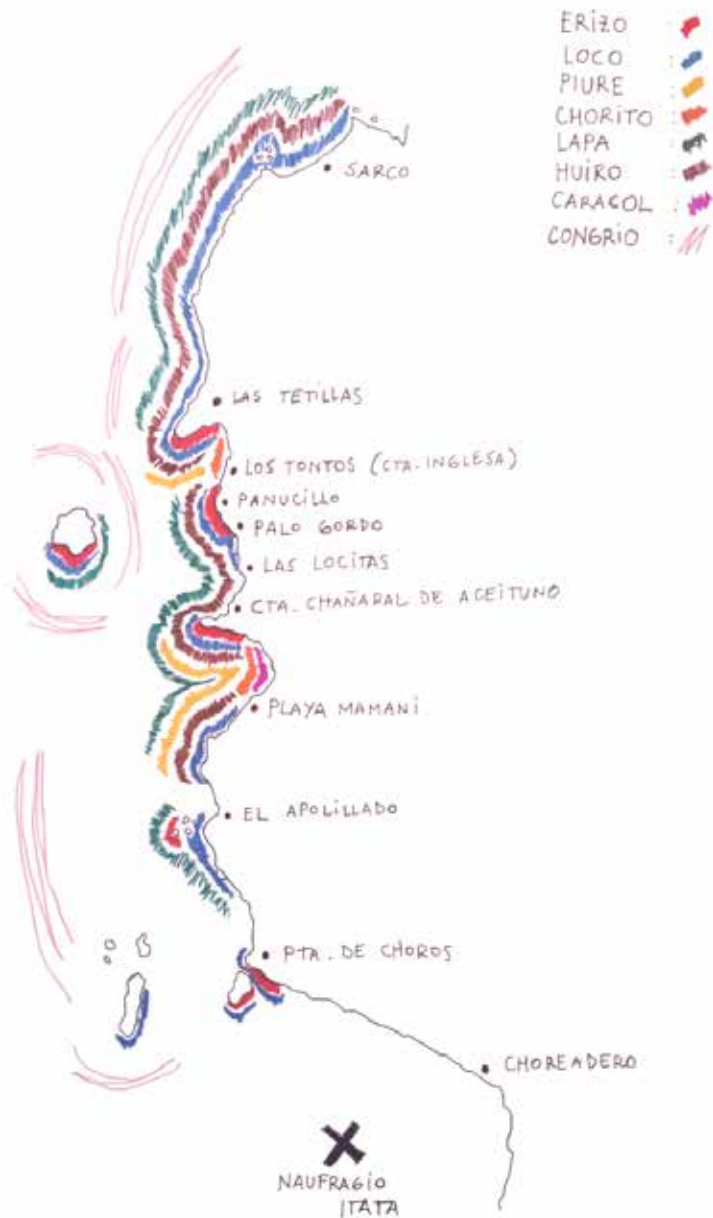 ERIZO :
LOCO :
PIURE :
CHORITO :
LAPA :
HUIRO :
CARACOL :
CONGRIO :
SARCO
LAS TETILLAS
LOS TONTOS (CTA. INGLESA)
PANUCILLO
PALO GORDO
LAS LOCITAS
CTA. CHAÑARAL DE ACEITUNO
PLAYA MAMANI
EL APOLILLADO
PTA. DE CHOROS
CHOREADERO
NAUFRAGIO
ITATA